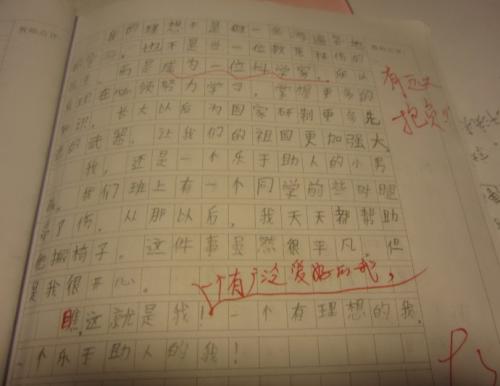 我的理想不是做一名
也不是当一位教
而是成为一位科学家。所以
我现在必须努力学习,掌握更多的
知识,长大以后为国家研制更多先
进的武器,让我们的祖国更加强大
我,还是一个乐于助人的小男
孩。我们班上有一个同学的
受了伤,从那以后,我天天都帮助
他搬椅子。这件事虽然很平凡,但
是我很开心。
一个有广泛爱好的我,
瞧,这就是我!一个有理想的我,
一个乐于助人的我!
有远大
抱负!